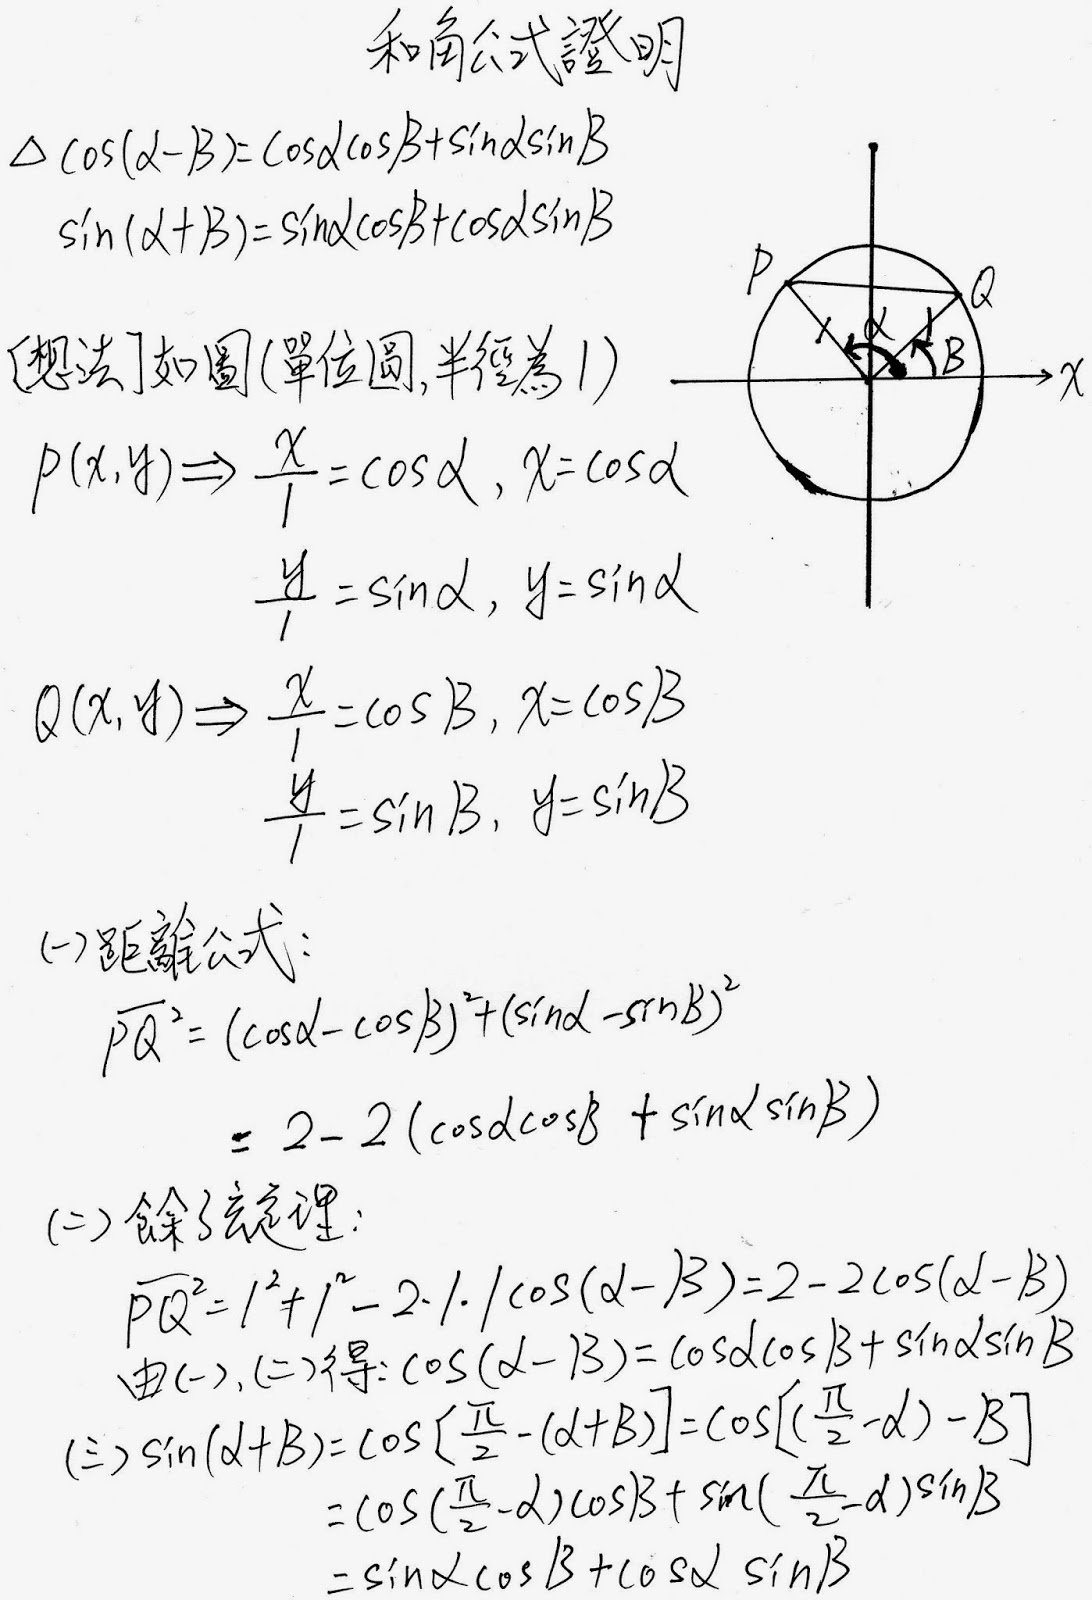 和角公式證明
△ cos(α-β)=cosαcosβ+sinαsinβ
sin(α+β)=sinαcosβ+cosαsinβ
P
Q
1
α
1
β
x
[想法]如圖(單位圓,半徑為1)
P(x,y)⇒ x/1=cosα, x=cosα
y/1=sinα, y=sinα
Q(x,y)⇒ x/1=cosβ, x=cosβ
y/1=sinβ, y=sinβ
(一)距離公式:
PQ²=(cosα-cosβ)²+(sinα-sinβ)²
=2-2(cosαcosβ+sinαsinβ)
(二)餘弦定理:
PQ²=1²+1²-2·1·1cos(α-β)=2-2cos(α-β)
由(一),(二)得:cos(α-β)=cosαcosβ+sinαsinβ
(三)sin(α+β)=cos[π/2-(α+β)]=cos[(π/2-α)-β]
=cos(π/2-α)cosβ+sin(π/2-α)sinβ
=sinαcosβ+cosα sinβ